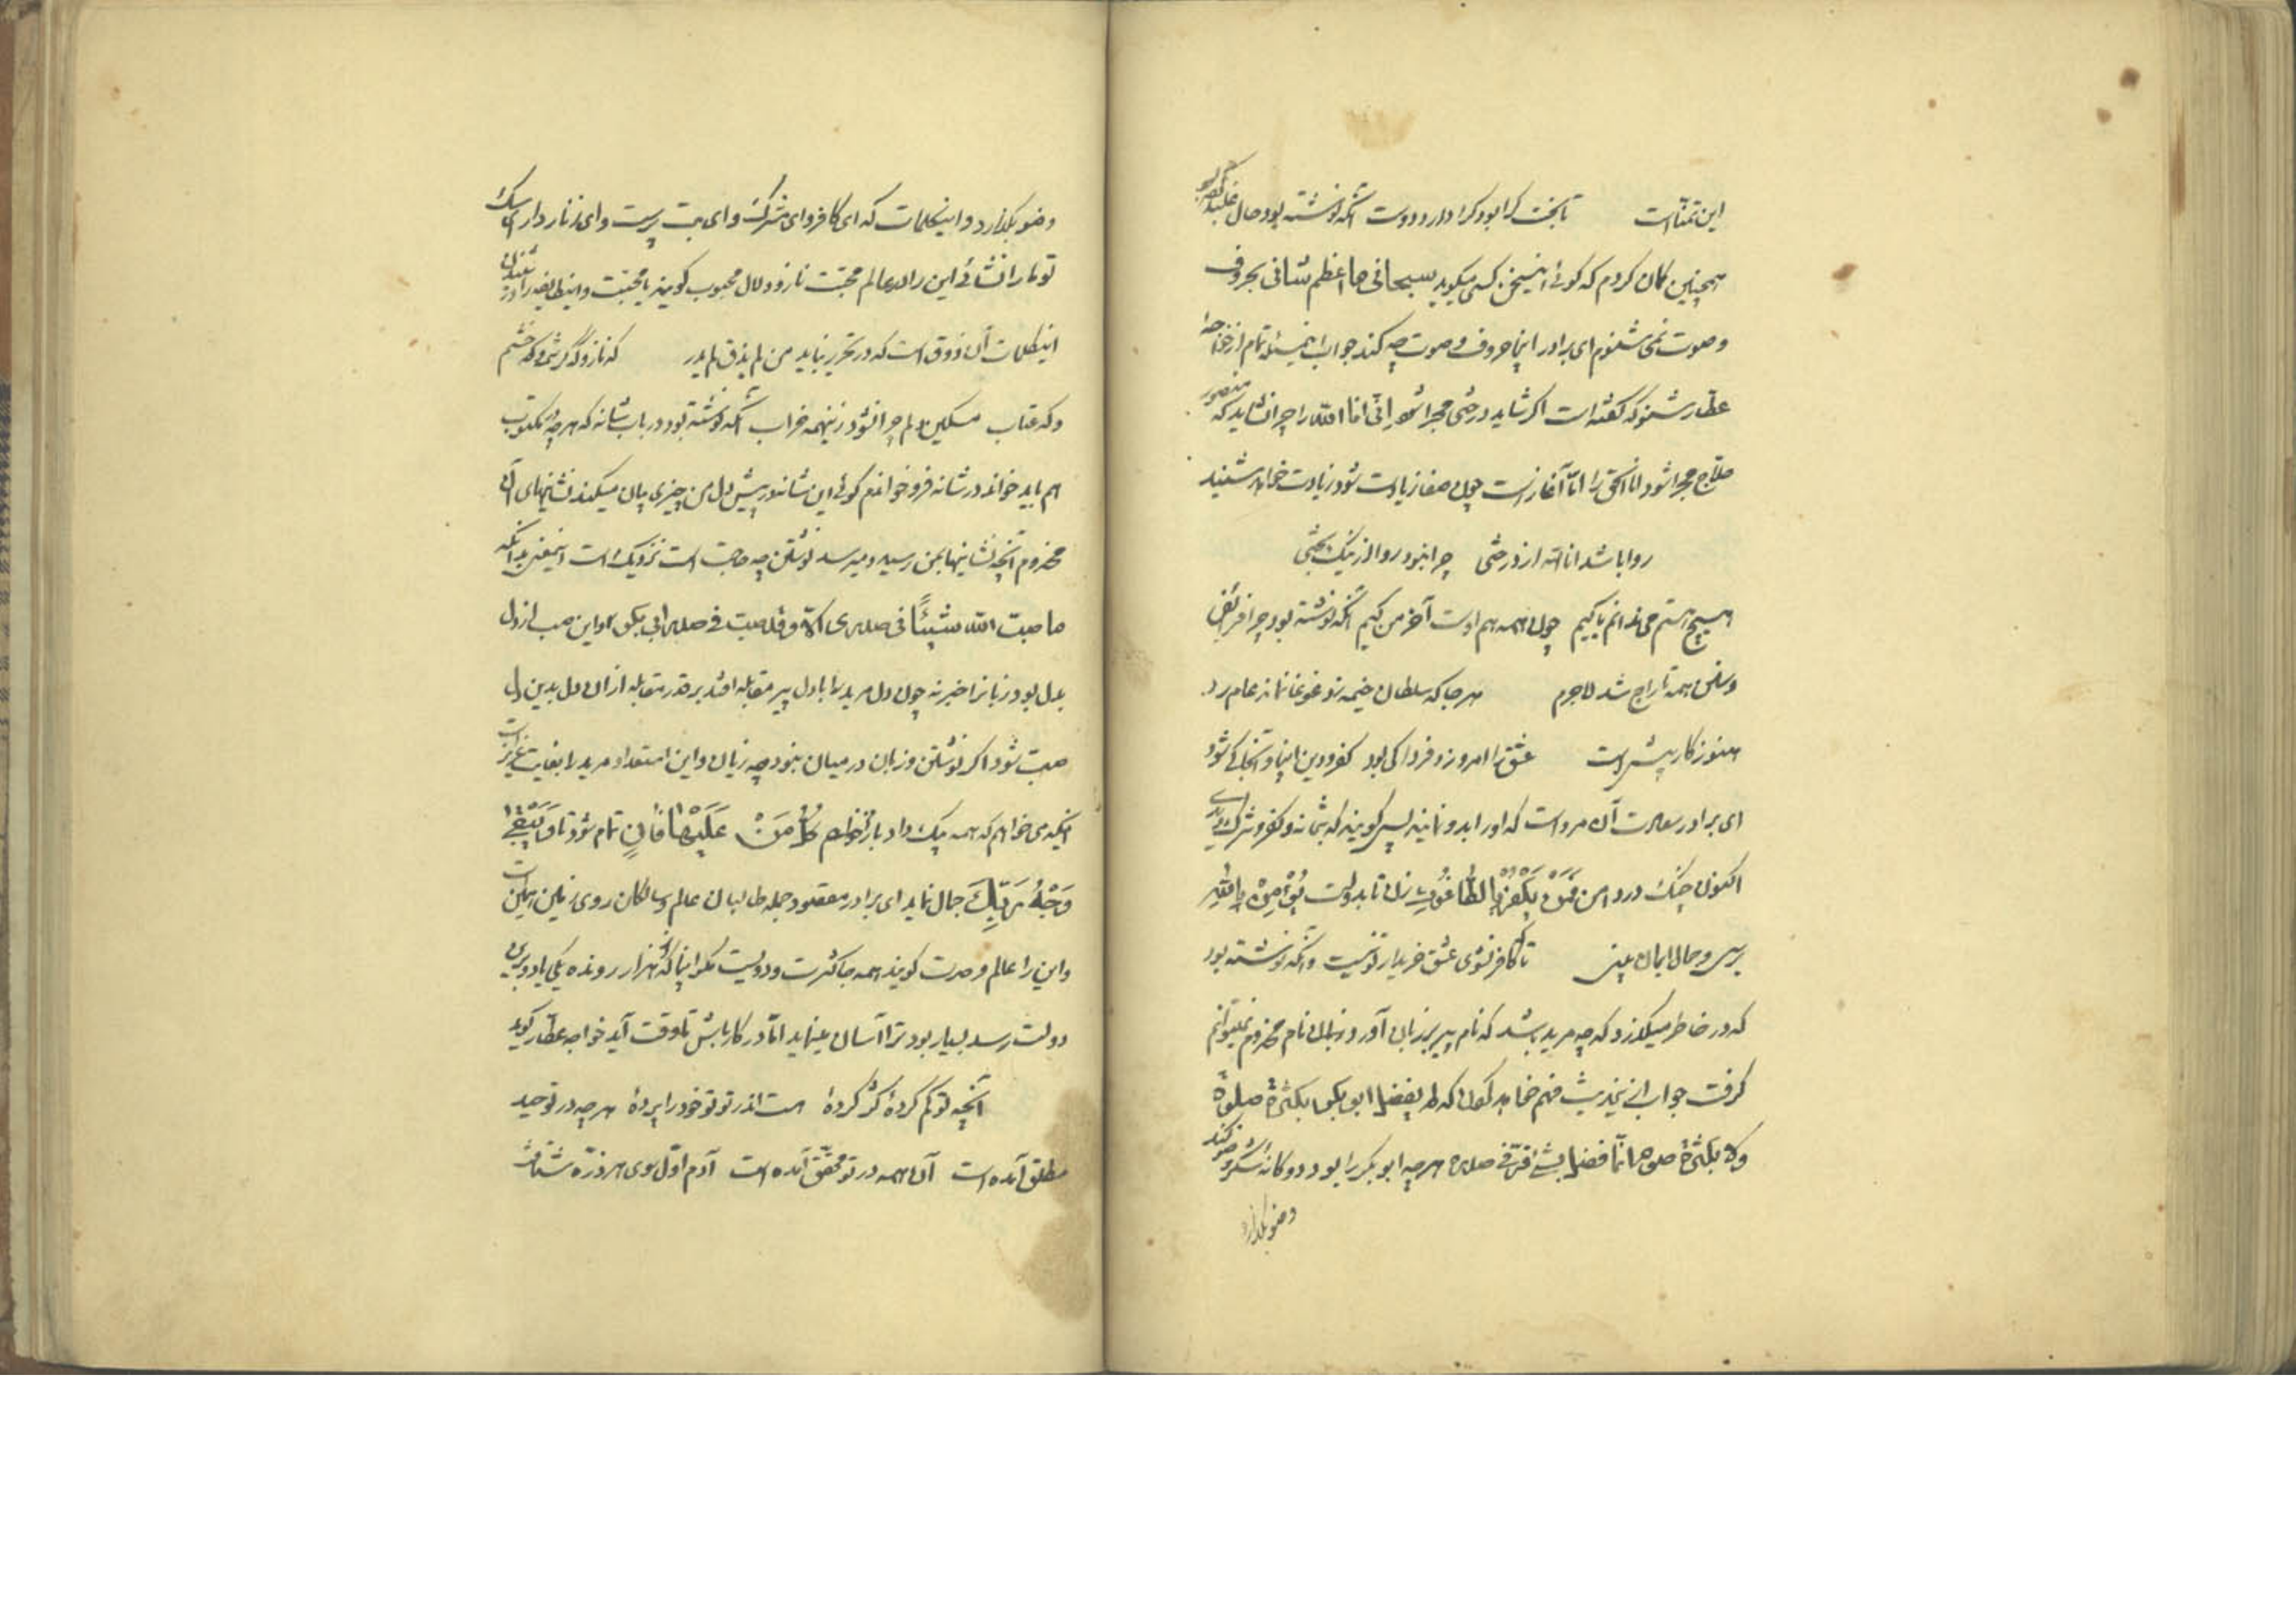 این تمنّاست تا بخت کرا بود کرا دارد دوست آنکه نوشته بود حال غلبه کرد
همچنین گمان کردم که گوئی این سخن کسی میگوید سبحانی ما اعظم شانی بحروف
و صوت نمی شنوم ای برادر اینجا حروف و صوت چه کند جواب این مسئله تمام از خواجهٔ
عطّار شنو که گفته است اگر شاید درختی مجرا شود انّی انا الله را چرا نشاید که منصور
حلّاج مجرا شود انا الحق را امّا آغاز است چون صفا زیادت شود زیادت خواهد شنید
روا باشد انا الله از درختی چرا نبود روا از نیک بختی
هیچ هستم می ندانم یا کیم چون همه هم اوست آخر من کیم آنکه نوشته بود چرا فرایض
و سنن همه تاراج شد لاجرم هر جا که سلطان خیمه زد غوغا نماند عام را
هنوز کار پیش است عشق را امروز و فردا کی بود کفر و دین اینجا و آنجا کی شود
ای برادر سعادت آن مرد است که او را بدو نمانند پس گویند که بت نه و کفر و شرک
اکنون چنگ در دامن فَمَنْ یَکْفُرْ بِالطَّاغُوتِ زن تا بدولت یُؤْمِنْ بِاللّٰهِ
برسی و جمال ایمان بینی تا کافر نشوی عشق خریدار تو نیست و آنکه نوشته بود
که در خاطر میگذرد که چه مرید باشد که نام پیر بر زبان آورد و بزبان نام مخدوم نمیتوانم
گرفت جواب این حدیث هم خواهد گفت که لم یفضل ابو بکر بکثرة صلوة
ولا بکثرة صوم انّما فضل بشیء وقر فی صدره هر چه ابو بکر را بود دوگانهٔ شکر وضو کند
وضو بگذارد
وضو بگذارد و این کلمات که ای کافر و ای مشرک و ای بت پرست و ای زنار دار ای سک
تو ما را نشائی این را در عالم محبّت ناز و دلال محبوب گویند با محبّت و این طایفه را در شنیدن
این کلمات آن ذوق است که در تحریر نیاید من لم یذق لم یدر که ناز و گه کرشمه و گه خشم
و گه عتاب مسکین دلم چرا نشود زینهمه خراب آنکه نوشته بود در باب شانه که هر چه در مکتوب
هم باید خواند در شانه فرو خواندم گوئی این شانه در پیش دل من چیزی بیان میکند نشانیهای آن
مخدوم آنچه نشانیها بمن رسید و میرسد نوشتن چه حاجت است نزدیک است این معنی بدانکه
ما صبّ الله شیئًا فی صدری الا وقد صببت فی صدر ابی بکر و این صب از دل
بدل بود زبانرا خبر نه چون دل مرید را با دل پیر مقابله افتد بر قدر مقابله از آن دل بدین دل
صبّ شود اگر نوشتن و زبان در میان نبود چه زیان و این استعداد مرید را بغایت عزیز است
اینکه می خواهم که همه بیک داد باز خواهم کُلُّ مَنْ عَلَیْهَا فَانٍ تمام شود تا وَیَبْقٰی
وَجْهُ رَبِّكَ جمال نماید ای برادر مقصود جمله طالبان عالم و سالکان روی زمین این است
و این را عالم وحدت گویند همه جا کثرت و دوئیست مگر اینجا که از هزار رونده یکی یا دو بدین
دولت رسد بسیار بود ترا آسان مینماید امّا در کار باش تا وقت آید خواجه عطّار گوید
آنچه تو گم کردهٔ گر کردهٔ هست اندر تو تو خود را پردهٔ هر چه در توحید
مطلق آمده است آن همه در تو محقّق آمده است آدم اوّل سوی هر ذرّه شتافت